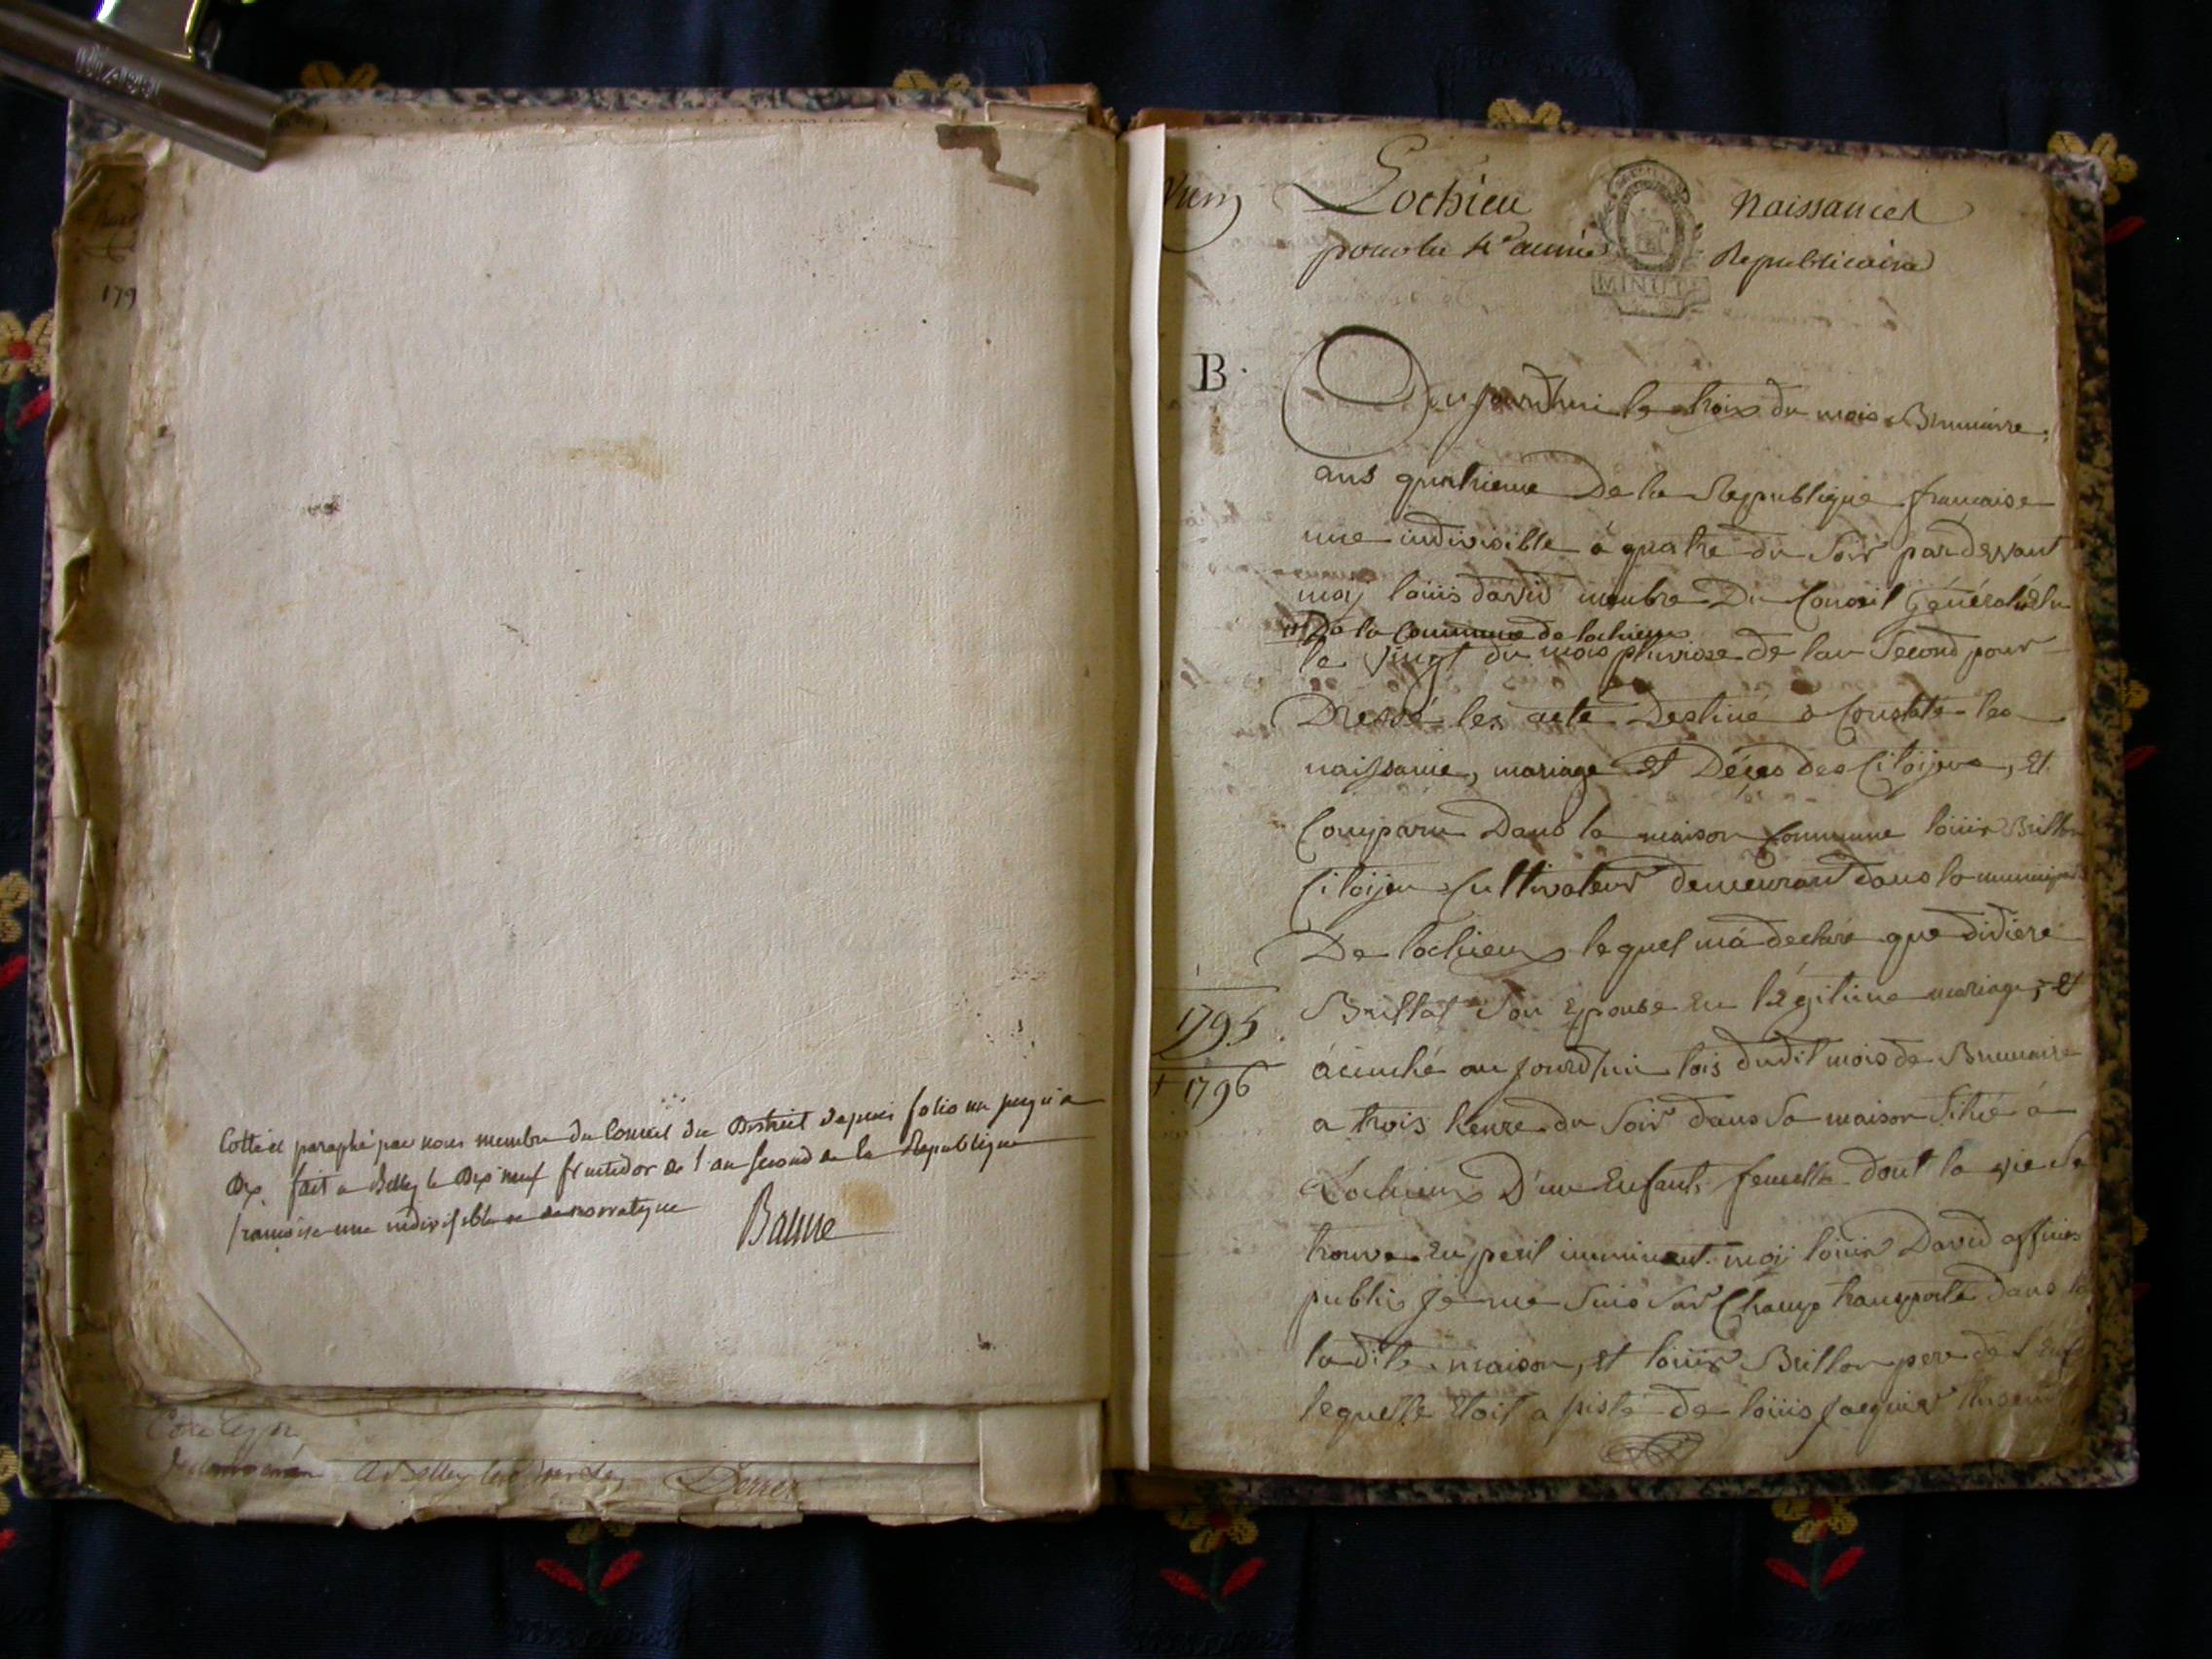 179
Cotté et paraphé par nous membre du Conseil du District depuis folio un jusqu'a
Dix fait a Belley le Dix neuf fructidor de l'an second de la Republique
francoise une indivisible et democratique
Baume
a Belley
Lochieu
Naissances
pour la 4e année
Republicaine
MINUTE
B.
Aujourdhui le trois du mois Brumaire
ans quatrieme De la Republique francaise
une indivisible à quatre du Soir pardevant
moj louis david membre Du Conseil Général élu
De la Commune de lochieux
le vingt du mois pluviose de lan Second pour
Dressé les acte Destiné a Constaté les
naissance, mariage et Décés des Citoijens, et
Comparu Dans la maison Commune louis Brillon
Citoijen Cultivateur demeurant dans la municipa
De lochieux lequel má declaré que didiere
Brillat Son Epouse En légitime mariage, et
ácouché aujourdhui tois dudit mois de Brumaire
a trois heure du Soir dans Sa maison Sitié á
Lochieux D'un Enfant, femelle dont la vie Se
1795
1796
trouve En peril imminent. moij louis David officier
public Je me Suis Sur Champ transporté dans la
ladite maison, et louis Brillon pere de l'Enf
lequelle Etoit a sisté de louis Jacquier